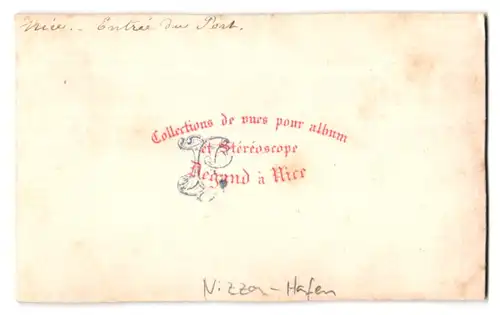 Nice. - Entrée du Port.
Collections de vues pour album
et Stéréoscope
Degand à Nice
Nizza - Hafen